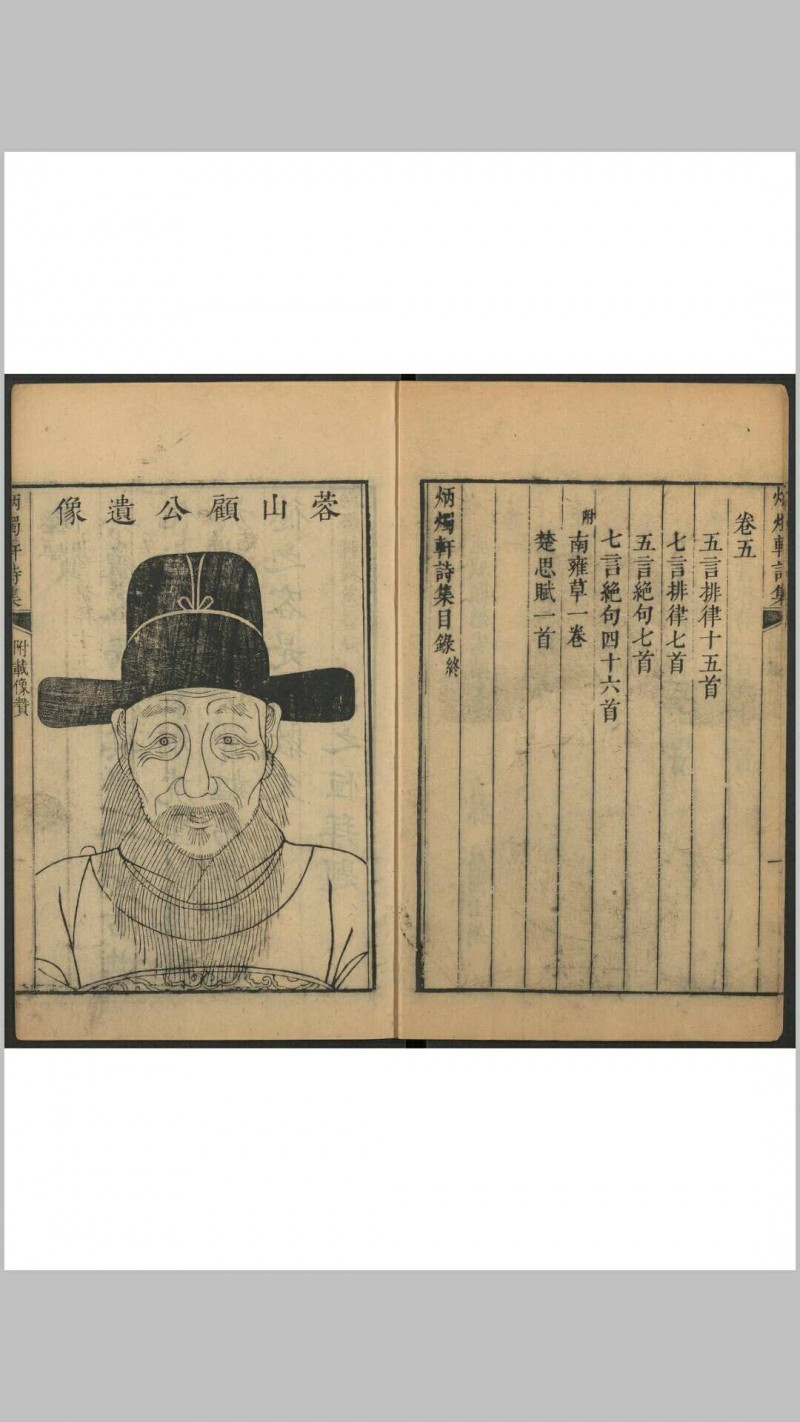 炳燭軒詩集
卷五
五言排律十五首
七言排律七首
五言絶句七首
七言絶句四十六首
附
南雍草一卷
楚思賦一首
炳燭軒詩集目錄終
一
蓉山顧公遺像
炳燭軒詩集
附載像贊